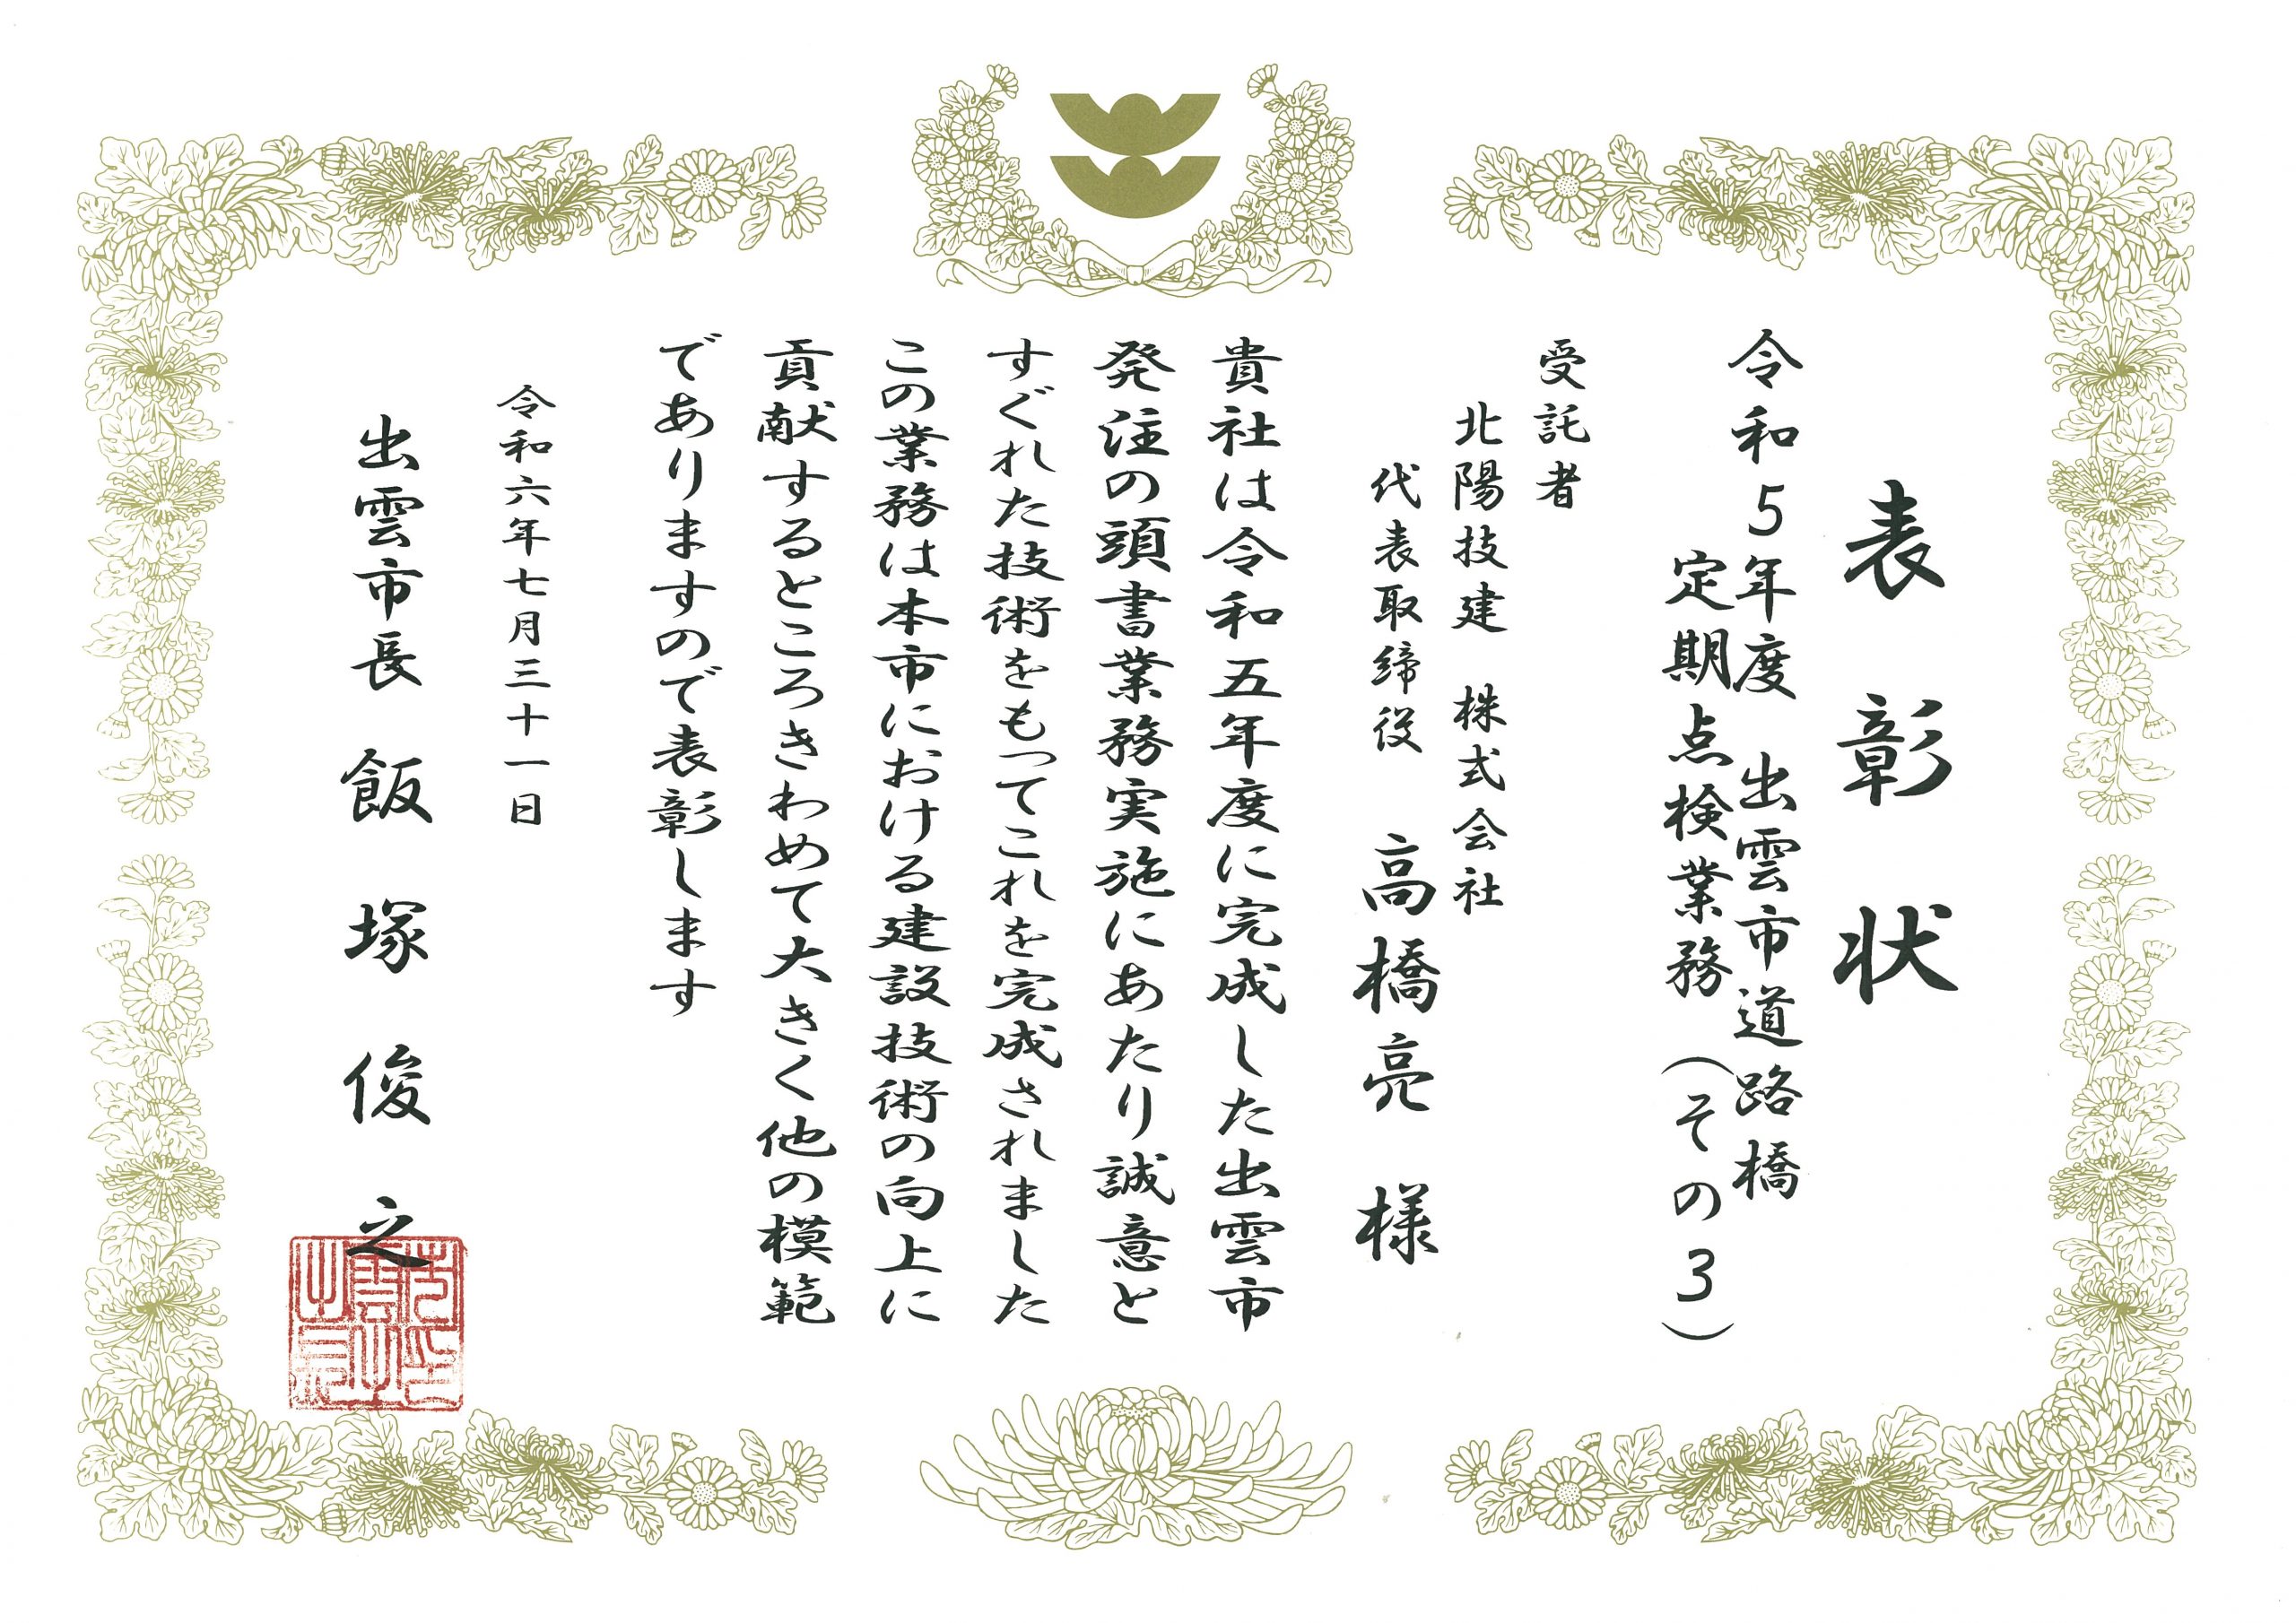 表彰状
令和5年度　出雲市道路橋
定期点検業務（その3）
受託者
北陽技建　株式会社
代表取締役　高橋亮　様
貴社は令和五年度に完成した出雲市
発注の頭書業務実施にあたり誠意と
すぐれた技術をもってこれを完成されました
この業務は本市における建設技術の向上に
貢献するところきわめて大きく他の模範
でありますので表彰します
令和六年七月三十一日
出雲市長　飯塚俊之